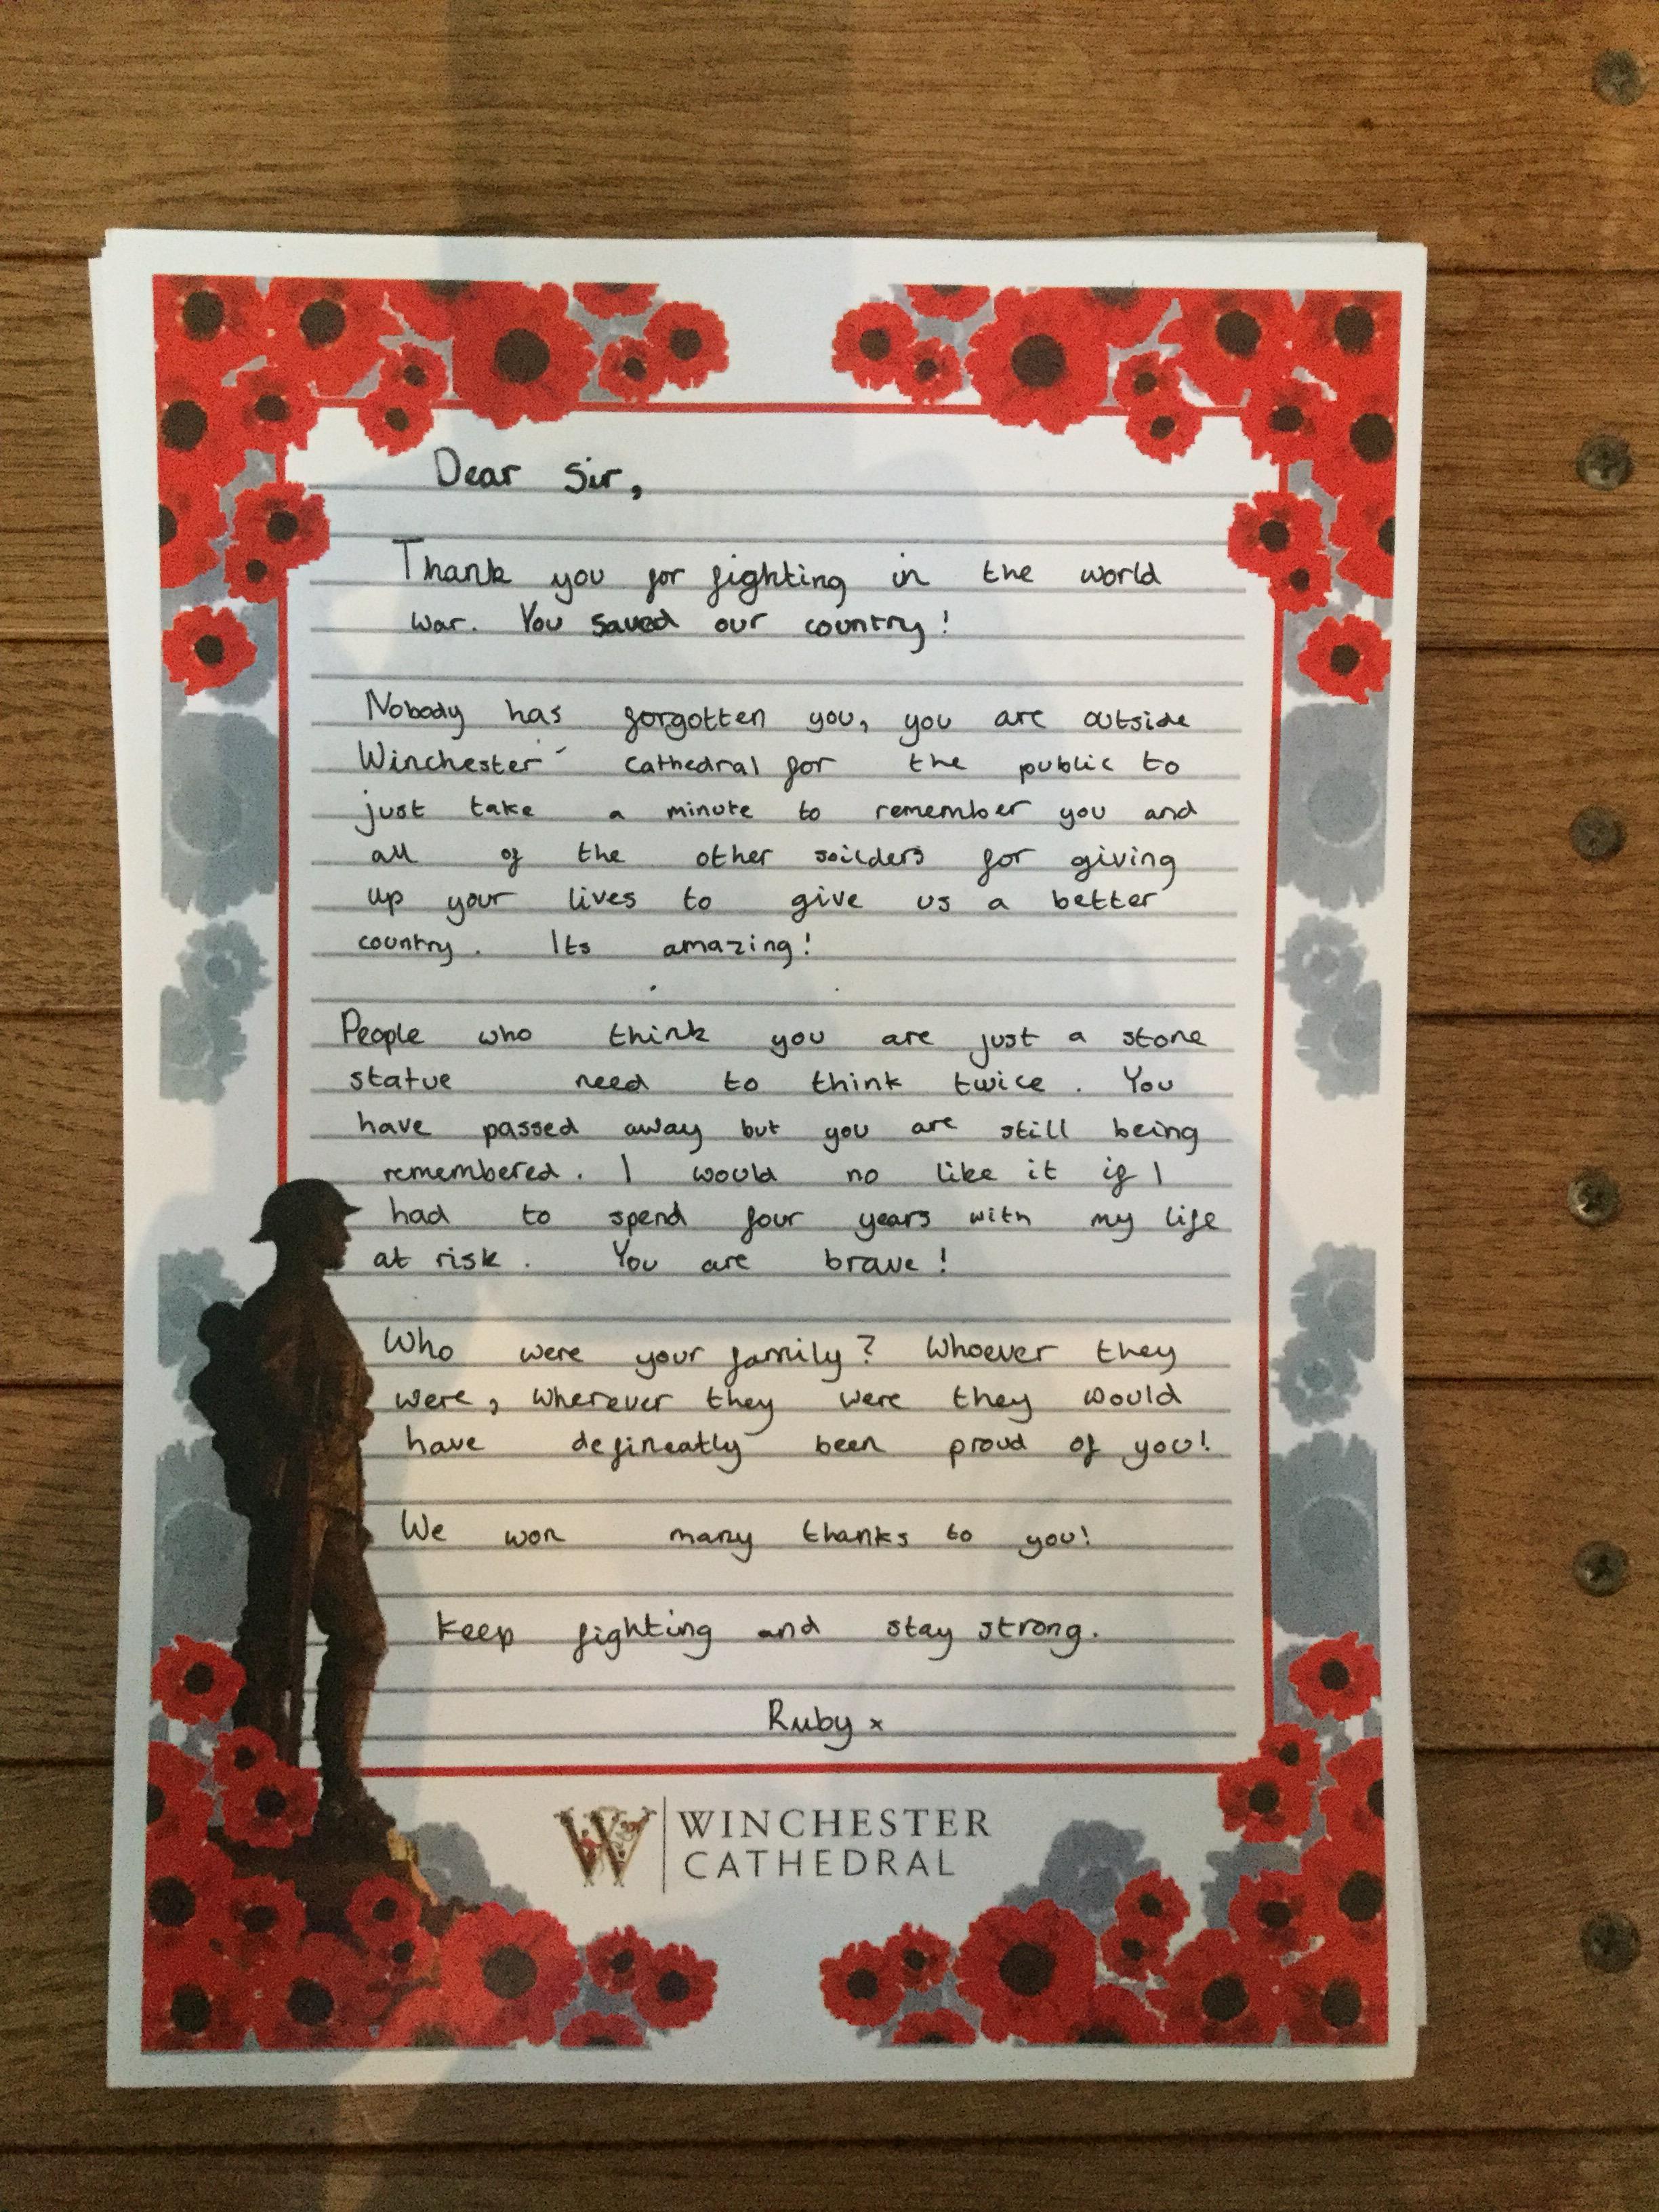 Dear Sir,
Thank you for fighting in the world
war. You saved our country!
Nobody has forgotten you, you are outside
Winchester cathedral for the public to
just take a minute to remember you and
all of the other soilders for giving
up your lives to give us a better
country. Its amazing!
People who think you are just a stone
statue need to think twice. You
have passed away but you are still being
remembered. I would no like it if I
had to spend four years with my life
at risk. You are brave!
Who were your family? Whoever they
were, wherever they were they would
have defineatly been proud of you!
We won many thanks to you!
Keep fighting and stay strong.
Ruby x
W WINCHESTER
CATHEDRAL